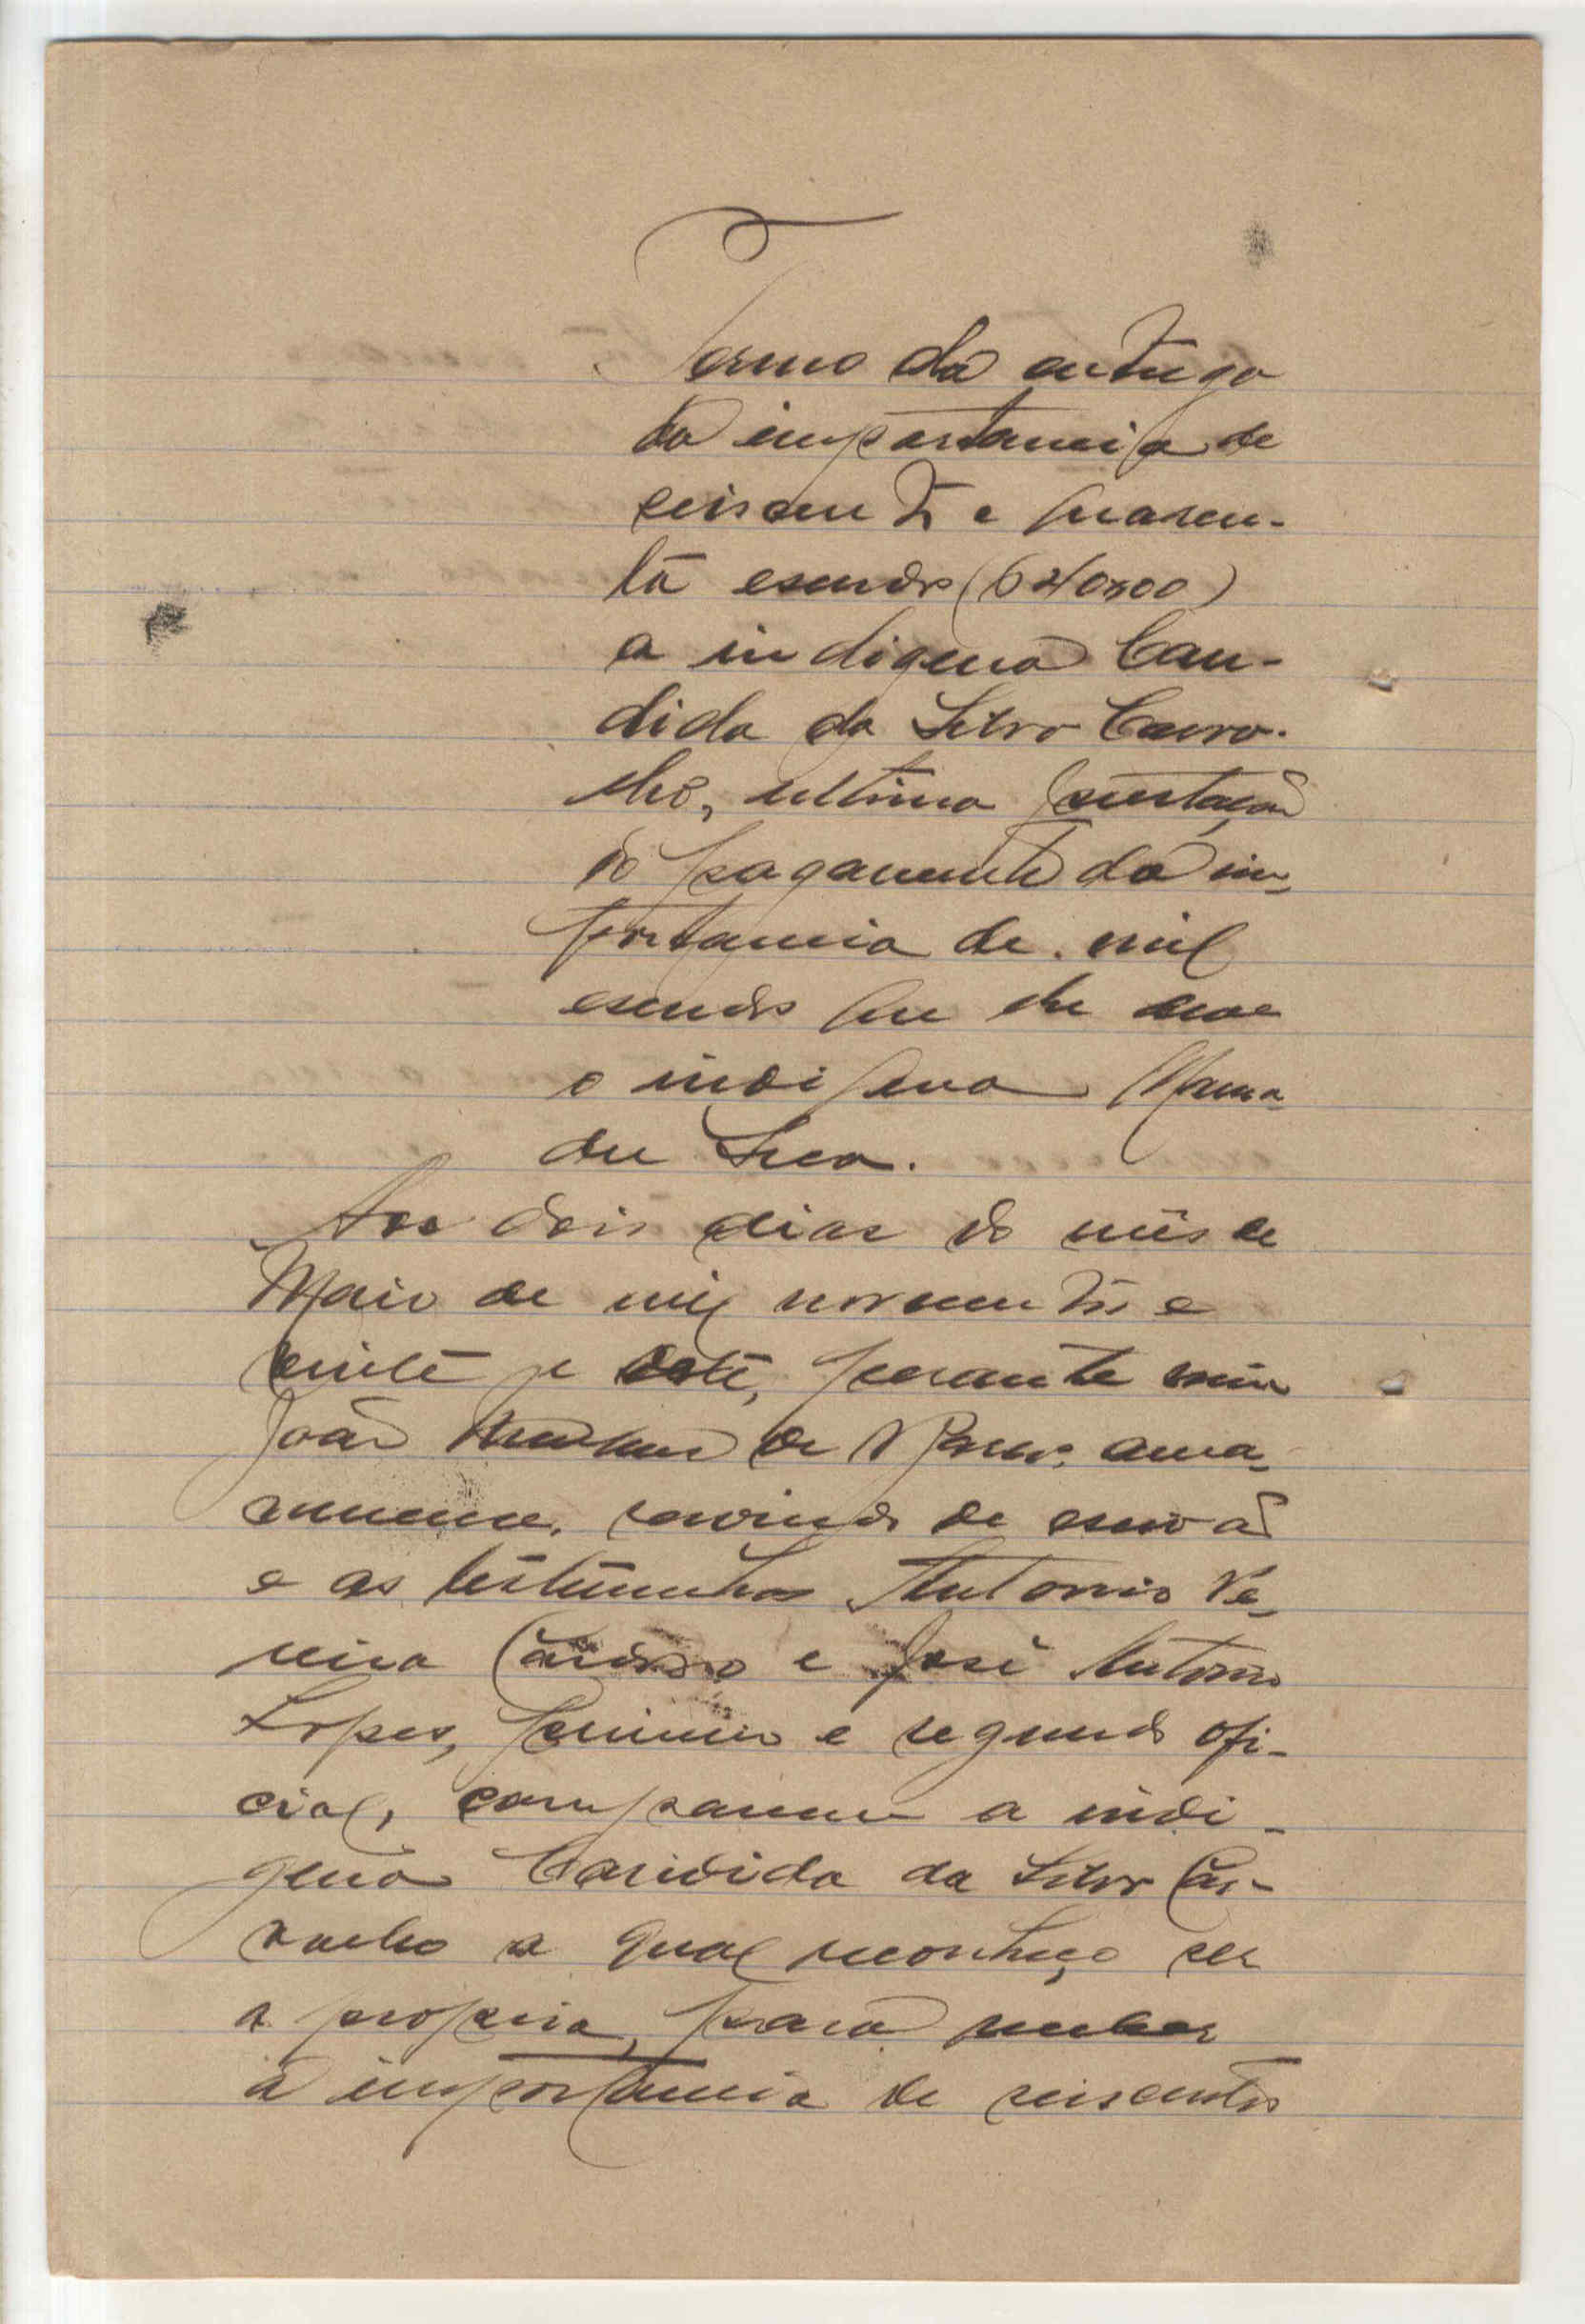 Termo da entrega
da importancia de
seiscentos e quaren-
ta escudos (640$00)
a indigena Can-
dida da Silva Carva-
lho, ultima prestação
do pagamento da im-
portancia de mil
escudos que lhe deve
o indigena Mama
du Seca.
Aos dois dias do mês de
Maio de mil novecentos e
vinte e sete, perante mim
João de ama-
nuense, servindo de escrivão
e as testemunhas Antonio Pe-
reira Cardoso e José Antonio
Lopes, primeiro e segundo ofi-
cial, compareceu a indi-
gena Candida da Silva Car-
valho a qual reconheço ser
a propria, para receber
a importancia de seiscentos